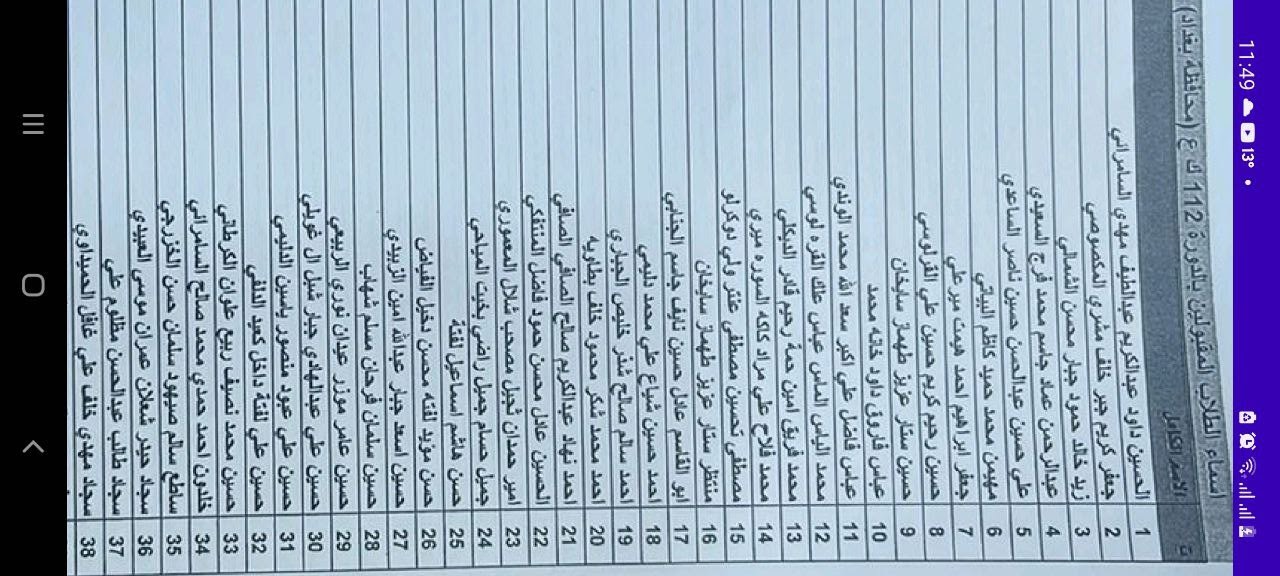 11:49 13°
اسماء الطلاب المقبولين بالدورة 112 ك ع (محافظة بغداد)
ت الاسم الكامل
1 الحسين داود عبدالكريم عبداللطيف مهدي السامرائي
2 جعفر كريم جبر خلف مشري المكصوصي
3 زيد خالد حمود جبار محسن الشمالي
4 عبدالرحمن عماد جاسم محمد فرج السعيدي
5 علي حسين عبدالحسن حسين ناصر الساعدي
6 مهيمن محمد حميد كاظم البياتي
7 جعفر ابراهيم احمد هيمت مير علي
8 حسين رحيم كريم حسين علي القرلوسي
9 حسين ستار عزيز طهماز سايخان
10 عباس فاروق داود خانه محمد
11 عباس فاضل علي اكبر سعد الله محمد الوندي
12 محمد الياس الماس عباس علك القره لوسي
13 محمد فريق امين حمة رحيم قادر الديكلي
14 محمد فلاح علي مراد كاكه السوره ميري
15 مصطفى تحسين مصطفى عنتر ولي دوكرلو
16 منتظر ستار عزيز طهماز سايخان
17 ابو القاسم عادل حسين نايف جاسم الجنابي
18 احمد حسين شياع علي محمد دليمي
19 احمد سالم صالح شذر خليص الجباري
20 احمد محمد شكر محمود خلف بطاويه
21 احمد نهاد عبدالكريم صالح الصافي الصافي
22 الحسين عادل محسن حمود فاضل المنتفكي
23 امير حمدان ثجيل مصحب شلال المعموري
24 جميل حسام جميل راضي بخيت المياحي
25 حسن هاشم اسماعيل لفتة
26 حسن مؤيد لفته محسن دخيل الفياض
27 حسين اسعد جبار عبدالله امين الزبيدي
28 حسين سلمان فرحان مسلم شهاب
29 حسين عامر موزر عيدان نوري الربيعي
30 حسين علي عبدالهادي جبار شبل ال غويلي
31 حسين علي عبود منصور ياسين الدليمي
32 حسين علي لفتة داخل كعيد الدلفي
33 حسين محمد نصيف ربيع علوان الكرطاني
34 خلدون احمد حمدي محمد صالح السامرائي
35 ساطع سالم صيهود سلمان حسن الخزرجي
36 سجاد حيدر شعلان عمران موسى العبيدي
37 سجاد طالب عبدالحسن مظلوم علي
38 سجاد مهدي خلف علي غافل الحميداوي